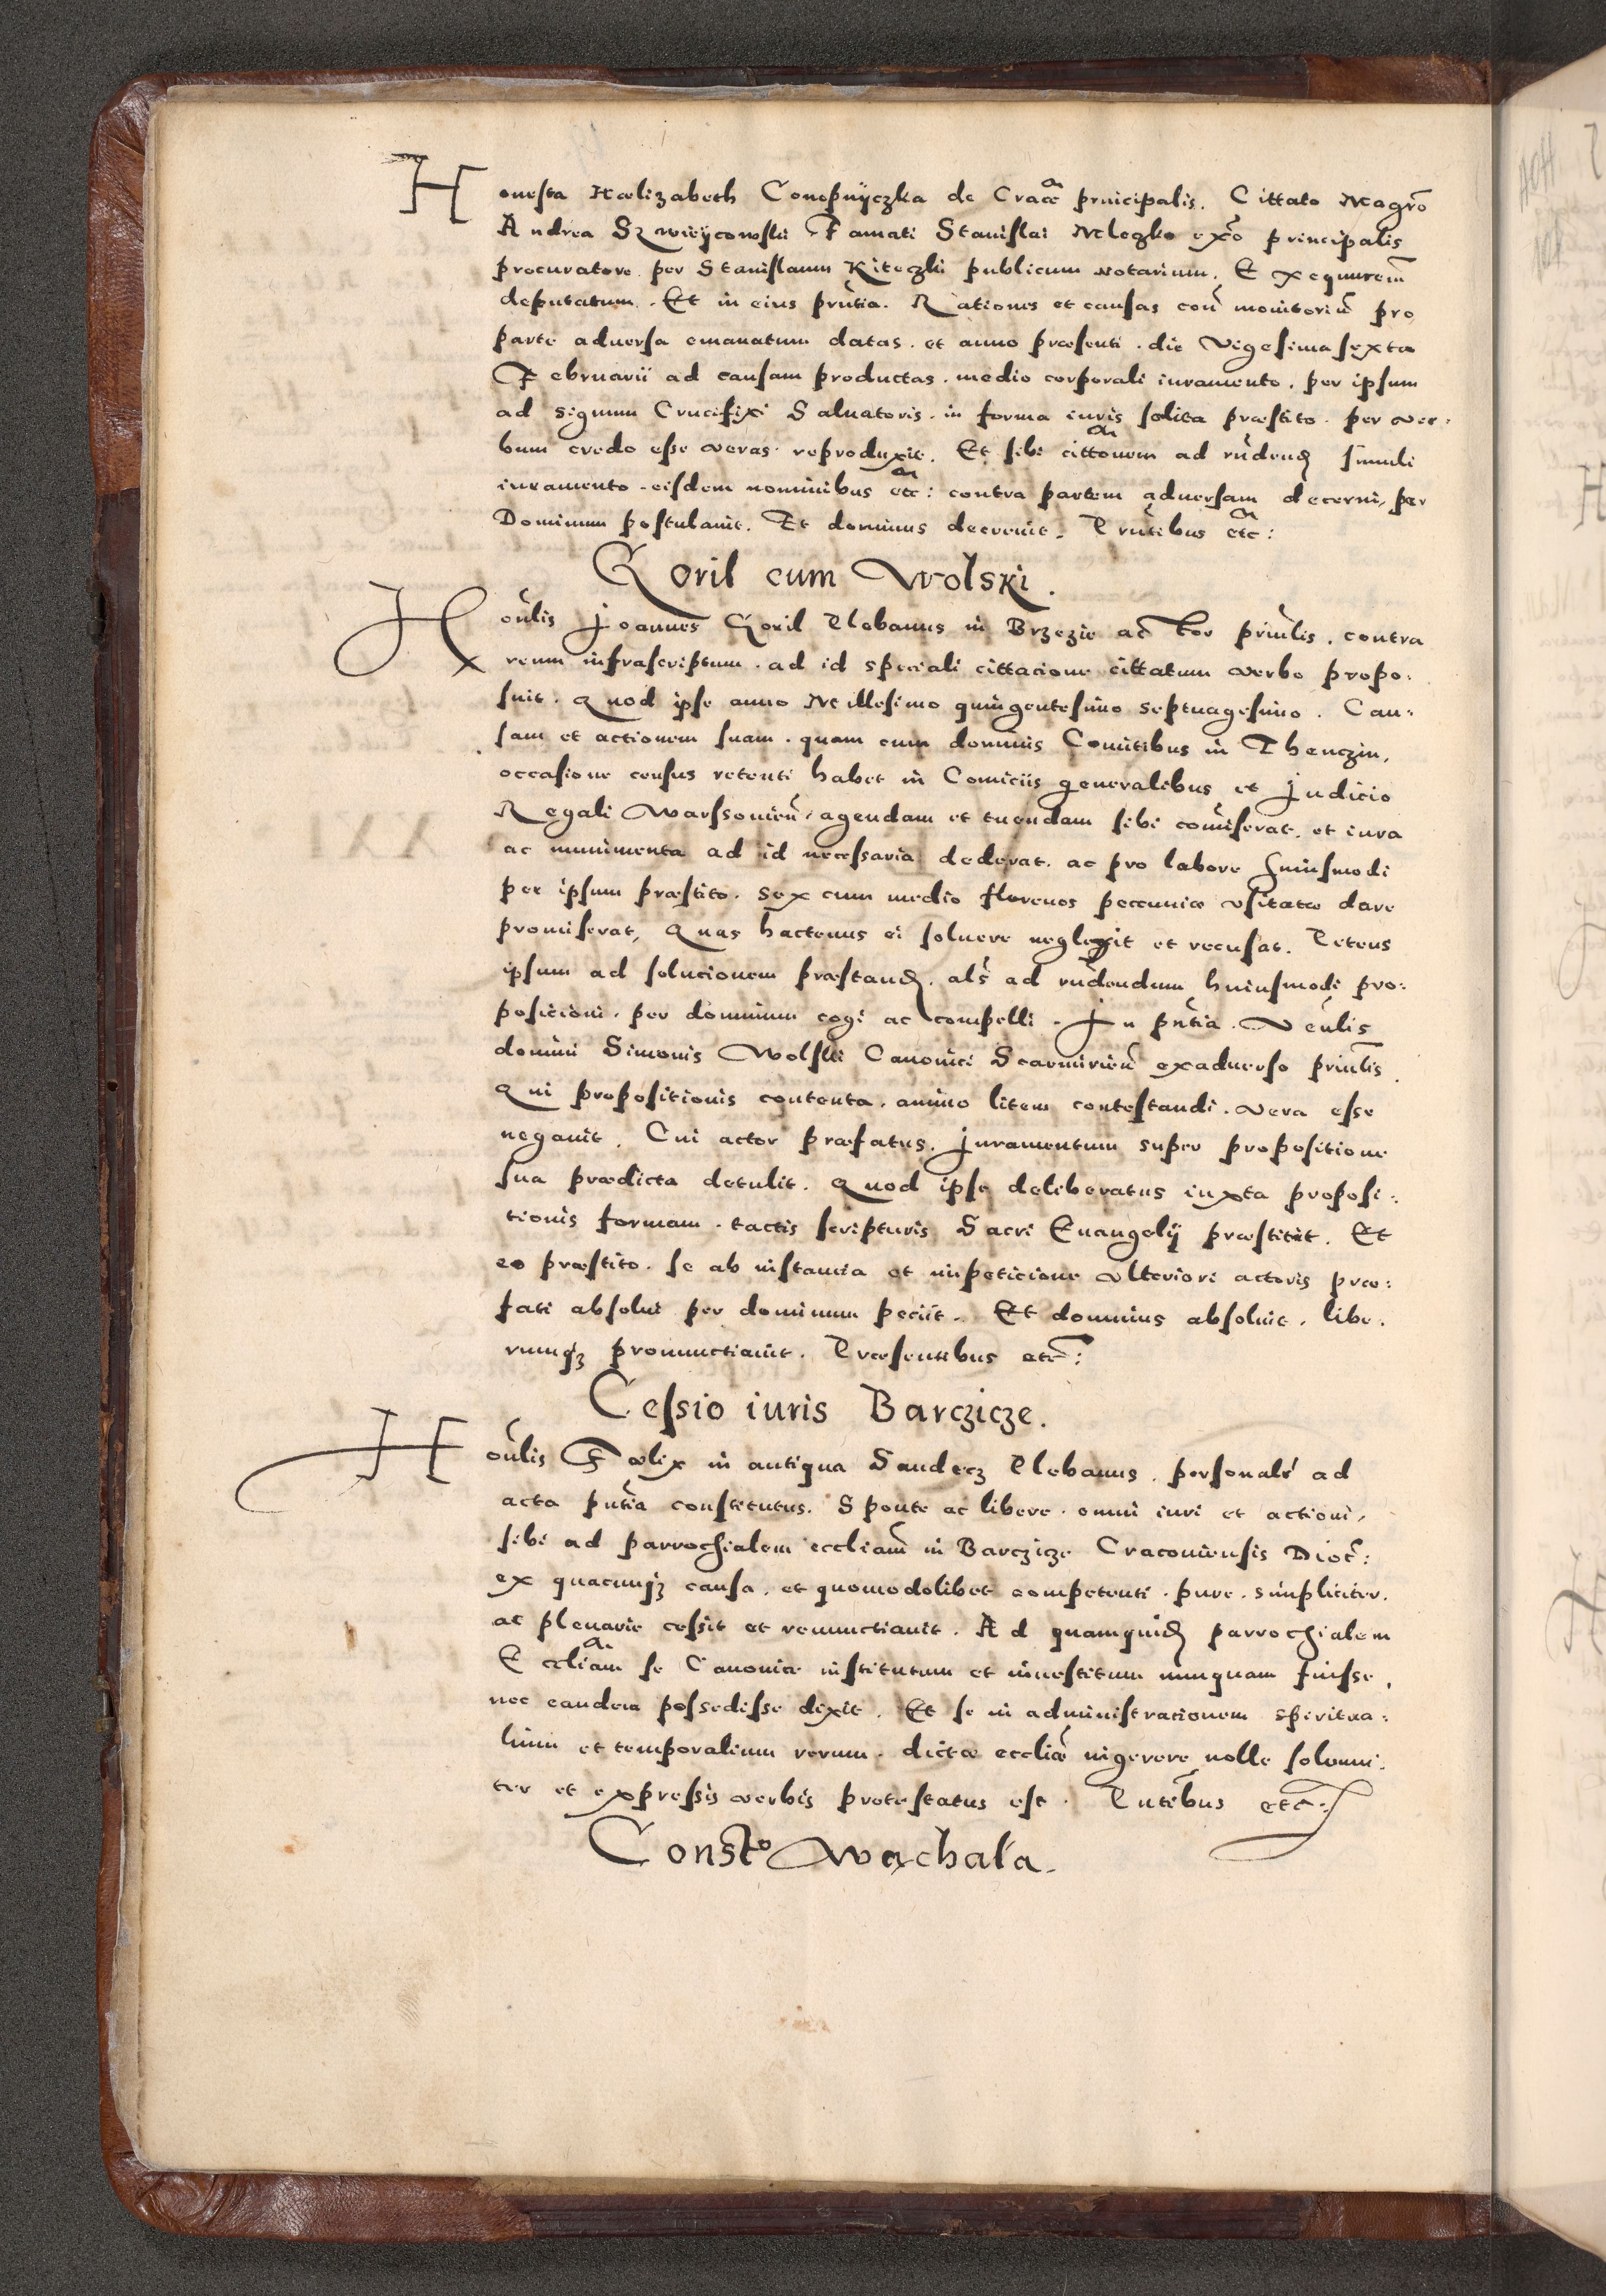 Honesta Hælizabeth Conopnÿczka de Craca principalis. Cittato Magrō
Andrea Szwieÿcowski Famati Stanislai Mloczko exō principalis
procuratore per Stanislaum Kiteczki publicum notarium. Exequurem̄
deputatum. Et in eius pn̄tia. Rationes et causas con̄ monitoriū pro
parte aduersa emanatum datas. et anno præsenti. die vigesima sexta
Februarii ad causam productas. medio corporali iuramento. per ipsum
ad signum Crucifixi Saluatoris. in forma iuris solita præstito. per ver:
bum credo esse veras reproduxit. Et sibi cittonem ad rn̄dend simili
iuramento eisdem nominibus etc: contra partem aduersam decerni, per
Dominum postulauit. Et dominus decreuit. Prn̄tibus etc:
Goril cum Wolski.
Honīlis Joannes Goril Plebanus in Brzezie actor prin̄lis. contra
reum infrascriptum. ad id speciali cittacione cittatum verbo propo:
suit. Quod ipse anno Millesimo quingentesimo septuagesimo. Cau:
sam et actionem suam. quam cum dominis Comitibus in Thenczin,
occasione census retenti habet in Comiciis generalibus et Judicio
Regali Warssouien̄ agendam et tuendam sibi comiserat. et iura
ac munimenta ad id necessaria dederat. ac pro labore huiusmodi
per ipsum præstito. sex cum medio florenos pecuniæ vsitatæ dare
promiserat, Quas hactenus ei soluere neglexit et recusat. Petens
ipsum ad solucionem præstand. als̄ ad rn̄dendum huiusmodi pro:
posicioni. per dominum cogi ac compelli. In pn̄tia. Venīlis
domini Simonis Wolski Canonici Scarmirien̄ exaduerso prin̄lis
Qui propositionis contenta. animo litem contestandi. vera esse
negauit. Cui actor præfatus. Juramentum super propositione
sua prædicta detulit. Quod ipse deliberatus iuxta proposi:
tionis formam. tactis scripturis Sacri Euangelÿ præstitit. Et
eo præstito. se ab instancia et impeticione vlteriori actoris præ:
fati absolui per dominum peciit. Et dominus absoluit. libe:
rumqȝ pronunctiauit. Præsentibus etc̄:
Cessio iuris Barczicze.
Honīlis Fælix in antiqua Sandecz Plebanus. personalr̄ ad
acta pn̄tia constitutus. Sponte ac libere. omni iuri et actioni,
sibi ad parrochialem eccliam̄ in Barczicze Cracouiensis Dioc̄:
ex quacunqȝ causa. et quomodolibet competenti. pure. simpliciter.
ac plenarie cessit et renunctiauit. Ad quamquid parrochialem
Eccliam se Canonicæ institutum et inuestitum nunquam fuisse,
nec eandem possedisse dixit. Et se in administrationem spiritua:
lium et temporalium rerum. dictæ eccliæ ingerere nolle solenni:
ter et expressis verbis protestatus est. Pn̄tibus etc̄:
Const͞o Wachala.